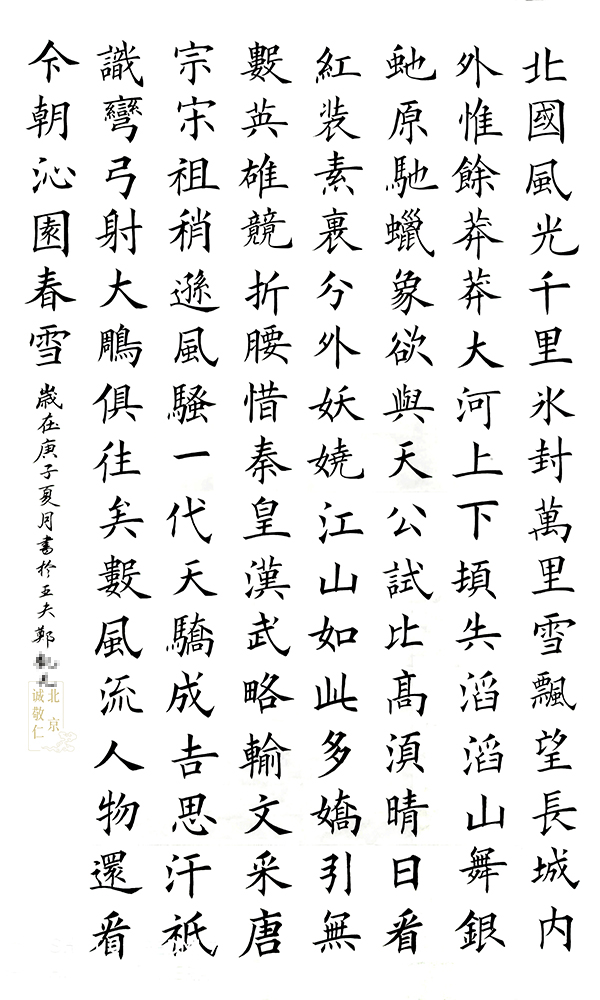 北國風光千里氷封萬里雪飄望長城内
外惟餘莽莽大河上下頓失滔滔山舞銀
虵原馳蠟象欲與天公試比髙須晴日看
紅装素裹分外妖嬈江山如此多嬌引無
數英雄競折腰惜秦皇漢武略輸文采唐
宗宋祖稍遜風騷一代天驕成吉思汗祇
識彎弓射大鵰俱往矣數風流人物還看
今朝沁園春雪 歲在庚子夏月書於五夫鄭
北京
诚敬仁